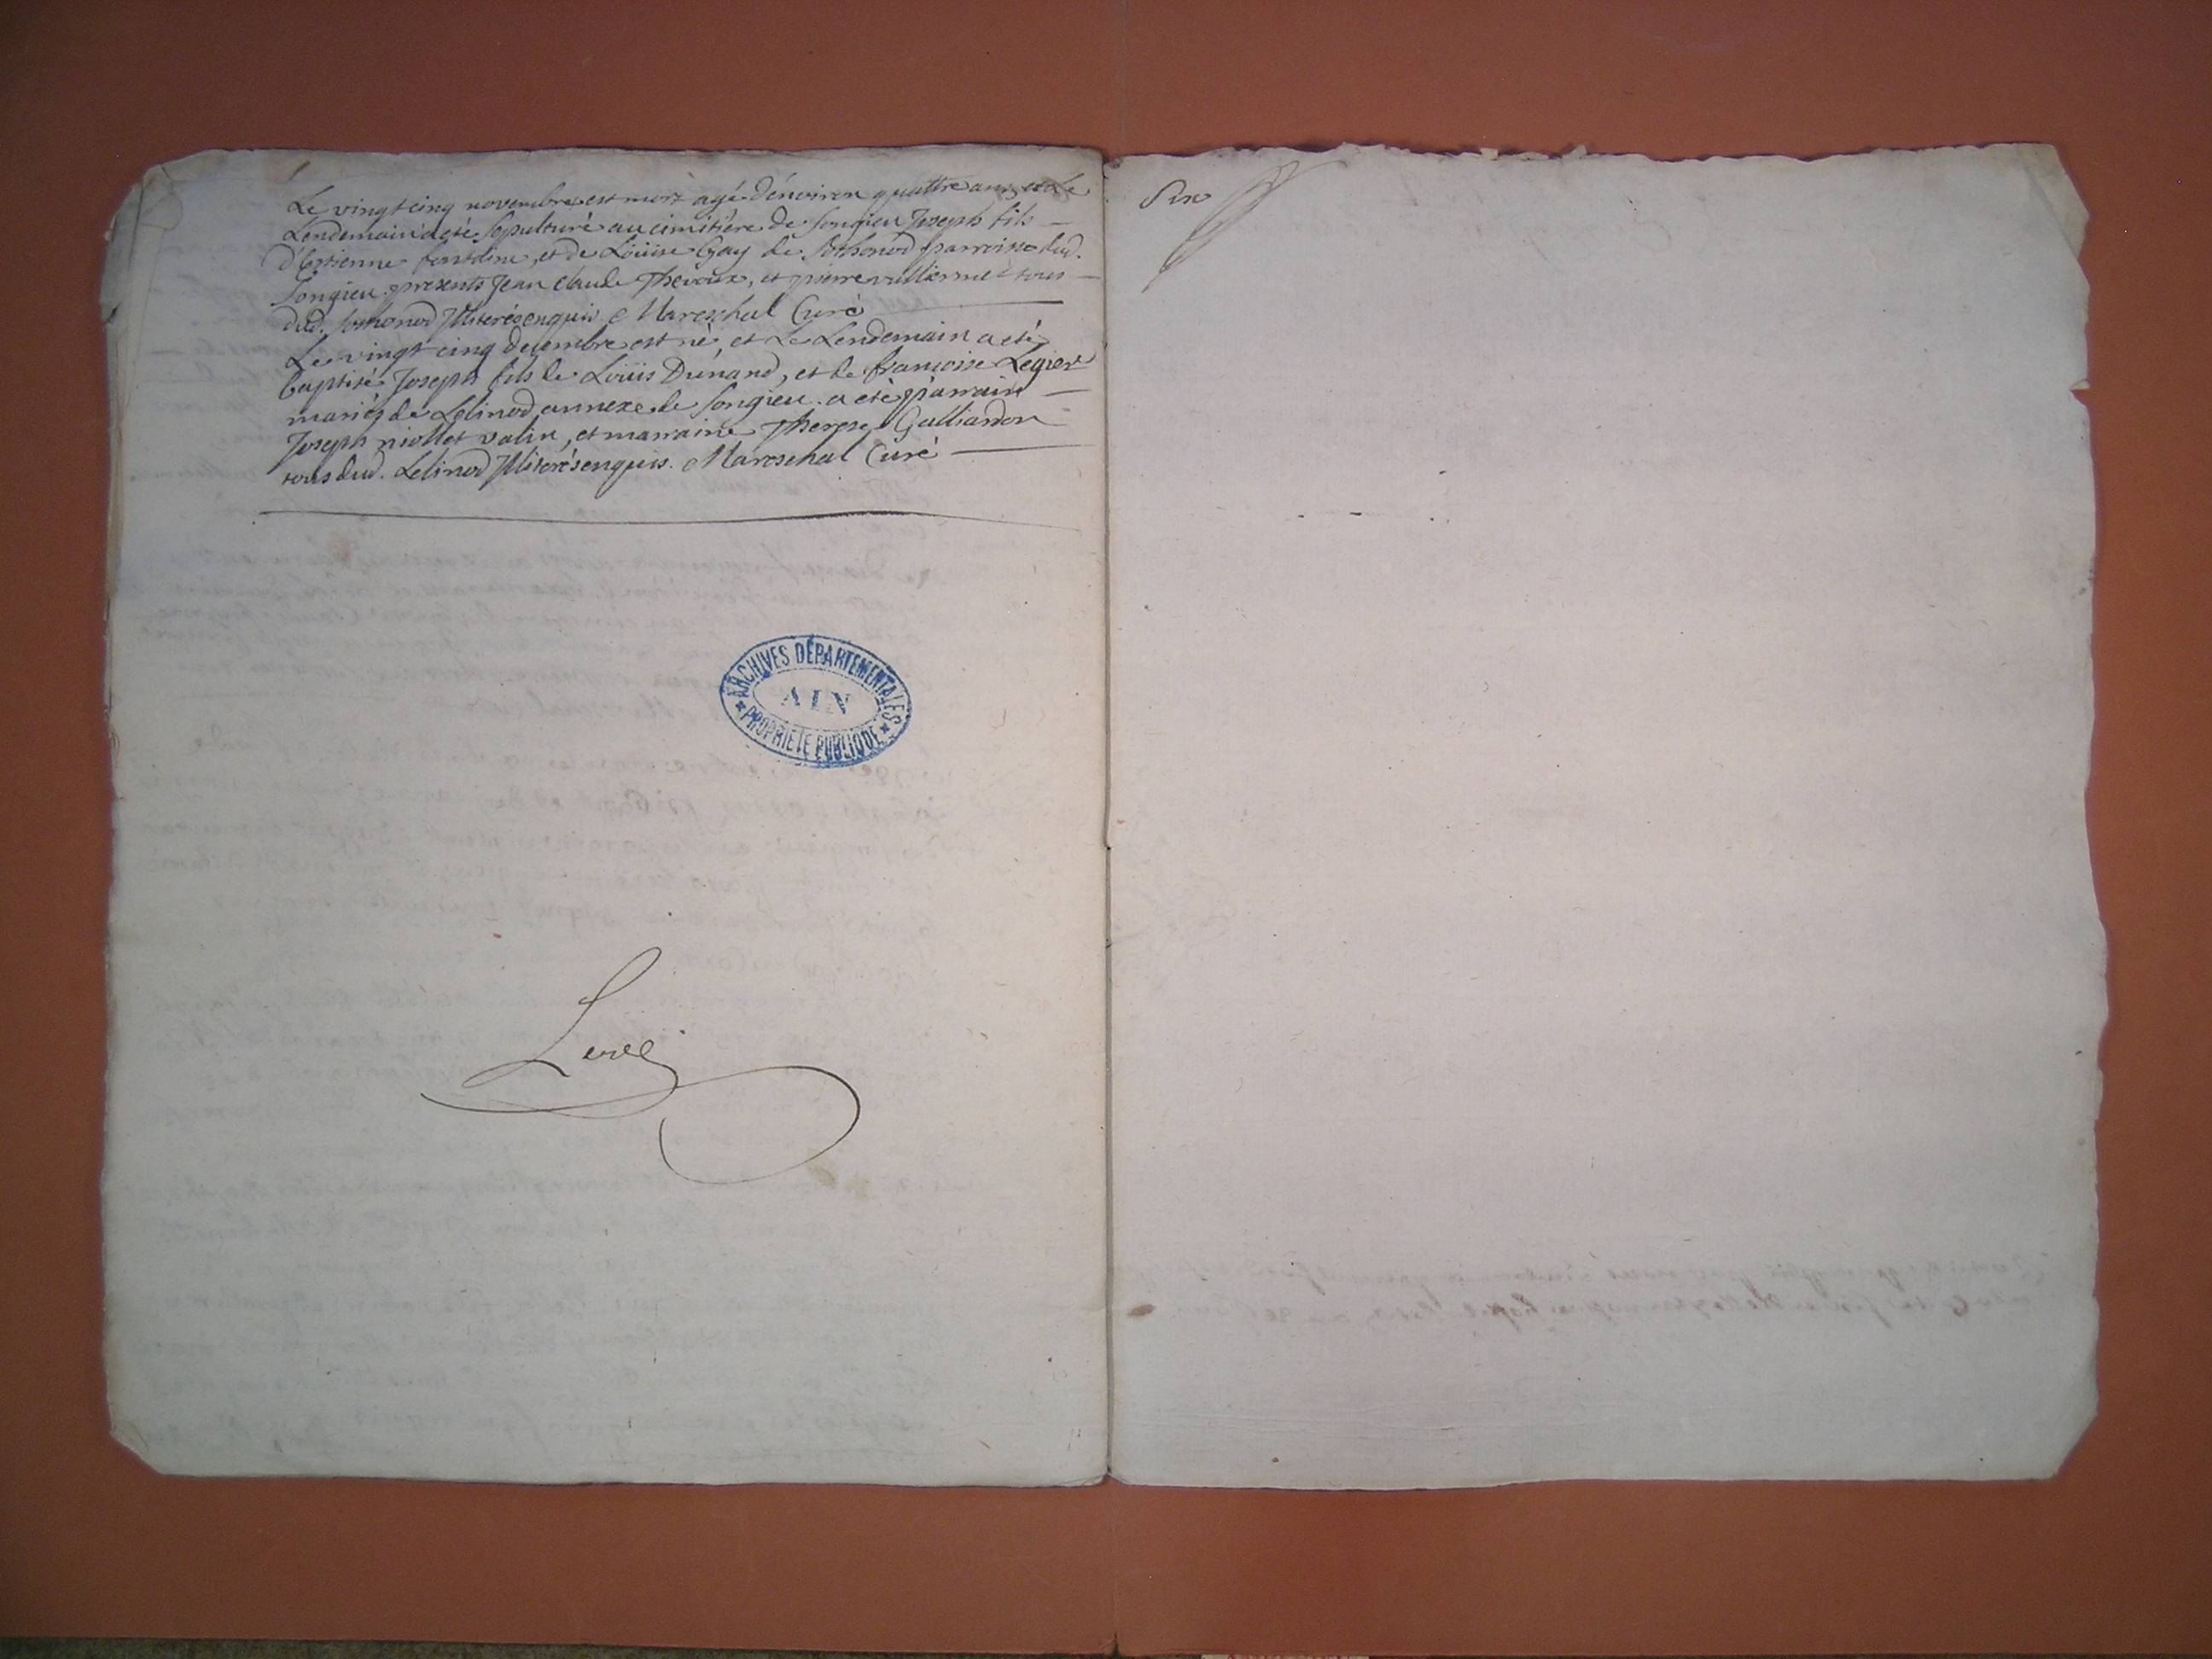 Le vingt cinq novembre est mort agé d'environ quattre ans, et Le
Lendemain a eté sepulturé au cimitière de Songieu Joseph fils
d'Estienne fontaine, et de Loüise Gay de Sothonod parroisse dud.
Songieu. presents Jean claude Thevoux, et pierre vulliermet tous
dud. Sothonod Illiterés enquis. Mareschal Curé
Le vingt cinq decembre est né, et Le Lendemain a eté
baptisé Joseph fils de Loüis Dunand, et de françoise Legier
mariés de Lelinod annexe de Songieu. a eté parrain
Joseph niollet valin, et marraine Therese Galliardon
tous dud. Lelinod Illiterés enquis. Mareschal Curé
ARCHIVES DÉPARTEMENTALES
AIN
PROPRIETE PUBLIQUE
Six